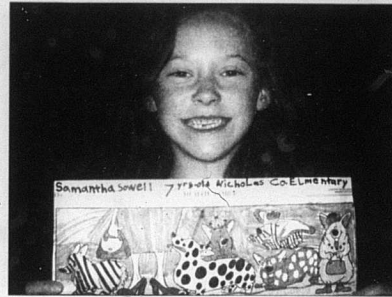 Samantha Sowell 7 yrs-old Nicholas Co. ELmentary